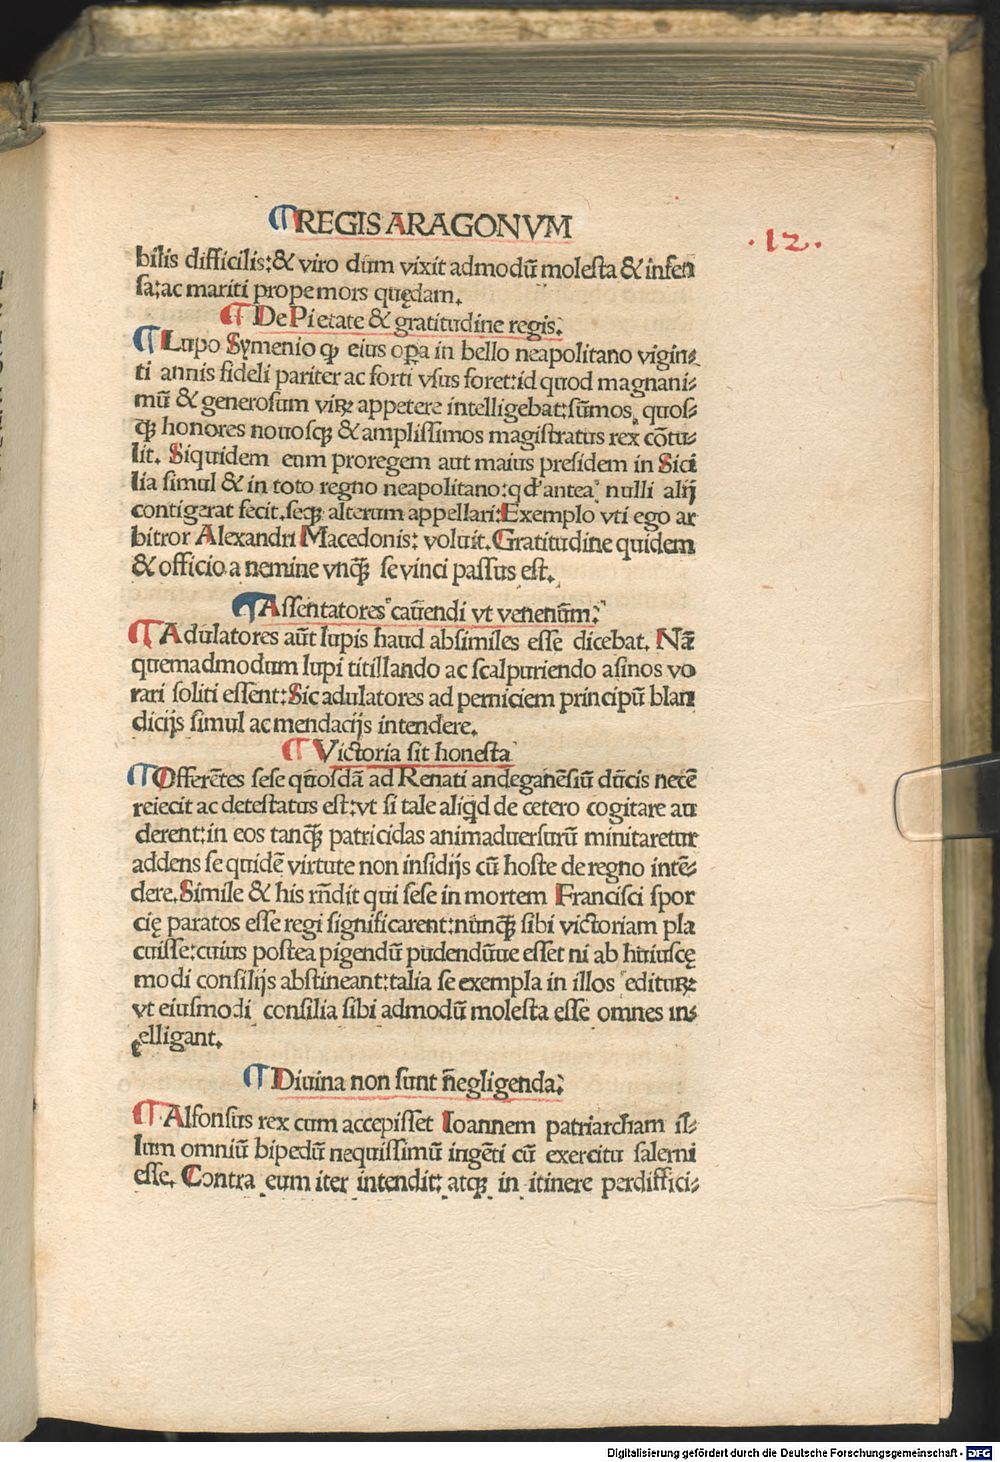 ¶REGIS ARAGONVM
.12.
bilis difficilis:& viro dum vixit admodū molesta & infen
sa:ac mariti prope mors quędam.
¶ De Pietate & gratitudine regis.
¶ Lupo Symenio ꝙ eius opa in bello neapolitano vigin⸗
ti annis fideli pariter ac forti vsus foret:id quod magnani⸗
mū & generosum viꝝ appetere intelligebat:sūmos quos⸗
qꝫ honores nouosqꝫ & amplissimos magistratus rex cōtu⸗
lit. Siquidem eum proregem aut maius presidem in Sici
lia simul & in toto regno neapolitano:qd' antea nulli alij
contigerat fecit.seqꝫ alterum appellari:Exemplo vti ego ar
bitror Alexandri Macedonis: voluit. Gratitudine quidem
& officio a nemine vnqꝫ̄ se vinci passus est.
¶Assentatores cauendi vt venenum:
¶Adulatores aūt lupis haud absimiles esse dicebat. Nā
quemadmodum lupi titillando ac scalpuriendo asinos vo
rari soliti essent:Sic adulatores ad perniciem principū blan
dicijs simul ac mendacijs intendere.
¶ Victoria sit honesta
¶Offerētes sese quosdā ad Renati andeganēsiū ducis necē
reiecit ac detestatus est:vt si tale aliqd de cetero cogitare au
derent:in eos tanqꝫ̄ patricidas animaduersurū minitaretur
addens se quidē virtute non insidijs cū hoste de regno intē⸗
dere.Simile & his rn̄dit qui sese in mortem Francisci spor
cię paratos esse regi significarent:nunqꝫ̄ sibi victoriam pla
cuisse:cuius postea pigendū pudendūue esset ni ab huiuscę
modi consilijs abstineant:talia se exempla in illos edituꝝ
vt eiusmodi consilia sibi admodū molesta esse omnes in⸗
telligant.
¶ Diuina non sunt negligenda:
¶Alfonsus rex cum accepisset Ioannem patriarcham il⸗
lum omniū bipedū nequissimū ingēti cū exercitu salerni
esse. Contra eum iter intendit: atqꝫ in itinere perdiffici⸗
Digitalisierung gefördert durch die Deutsche Forschungsgemeinschaft - DFG